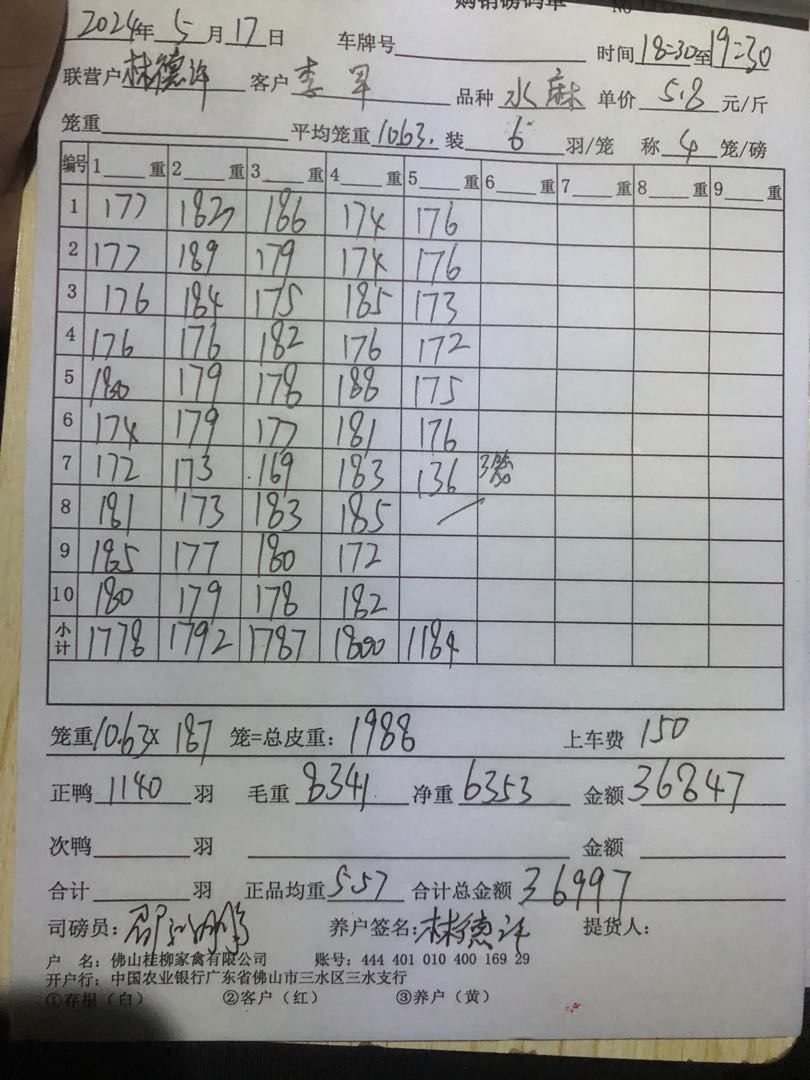 购销磅码单 NO
2024年 5 月 17 日 车牌号 时间 18=30至19=30
联营户 林德许 客户 李军 品种 水麻 单价 5.8 元/斤
笼重 平均笼重 1063. 装 6 羽/笼 称 4 笼/磅
编号 1 重 2 重 3 重 4 重 5 重 6 重 7 重 8 重 9 重
1 177 182 186 174 176
2 177 189 179 174 176
3 176 184 175 185 173
4 176 176 182 176 172
5 180 179 178 188 175
6 174 179 177 181 176
7 172 173 169 183 136 3笼
8 181 173 183 185
9 185 177 180 172
10 180 179 178 182
小计 1778 1792 1787 1800 1184
笼重 10.63 X 187 笼=总皮重: 1988 上车费 150
正鸭 1140 羽 毛重 8341 净重 6353 金额 36847
次鸭 羽 金额
合计 羽 正品均重 5.57 合计总金额 36997
司磅员: 养户签名: 林德许 提货人:
户 名: 佛山桂柳家禽有限公司 账号: 444 401 010 400 169 29
开户行: 中国农业银行广东省佛山市三水区三水支行
①存根(白) ②客户(红) ③养户(黄)